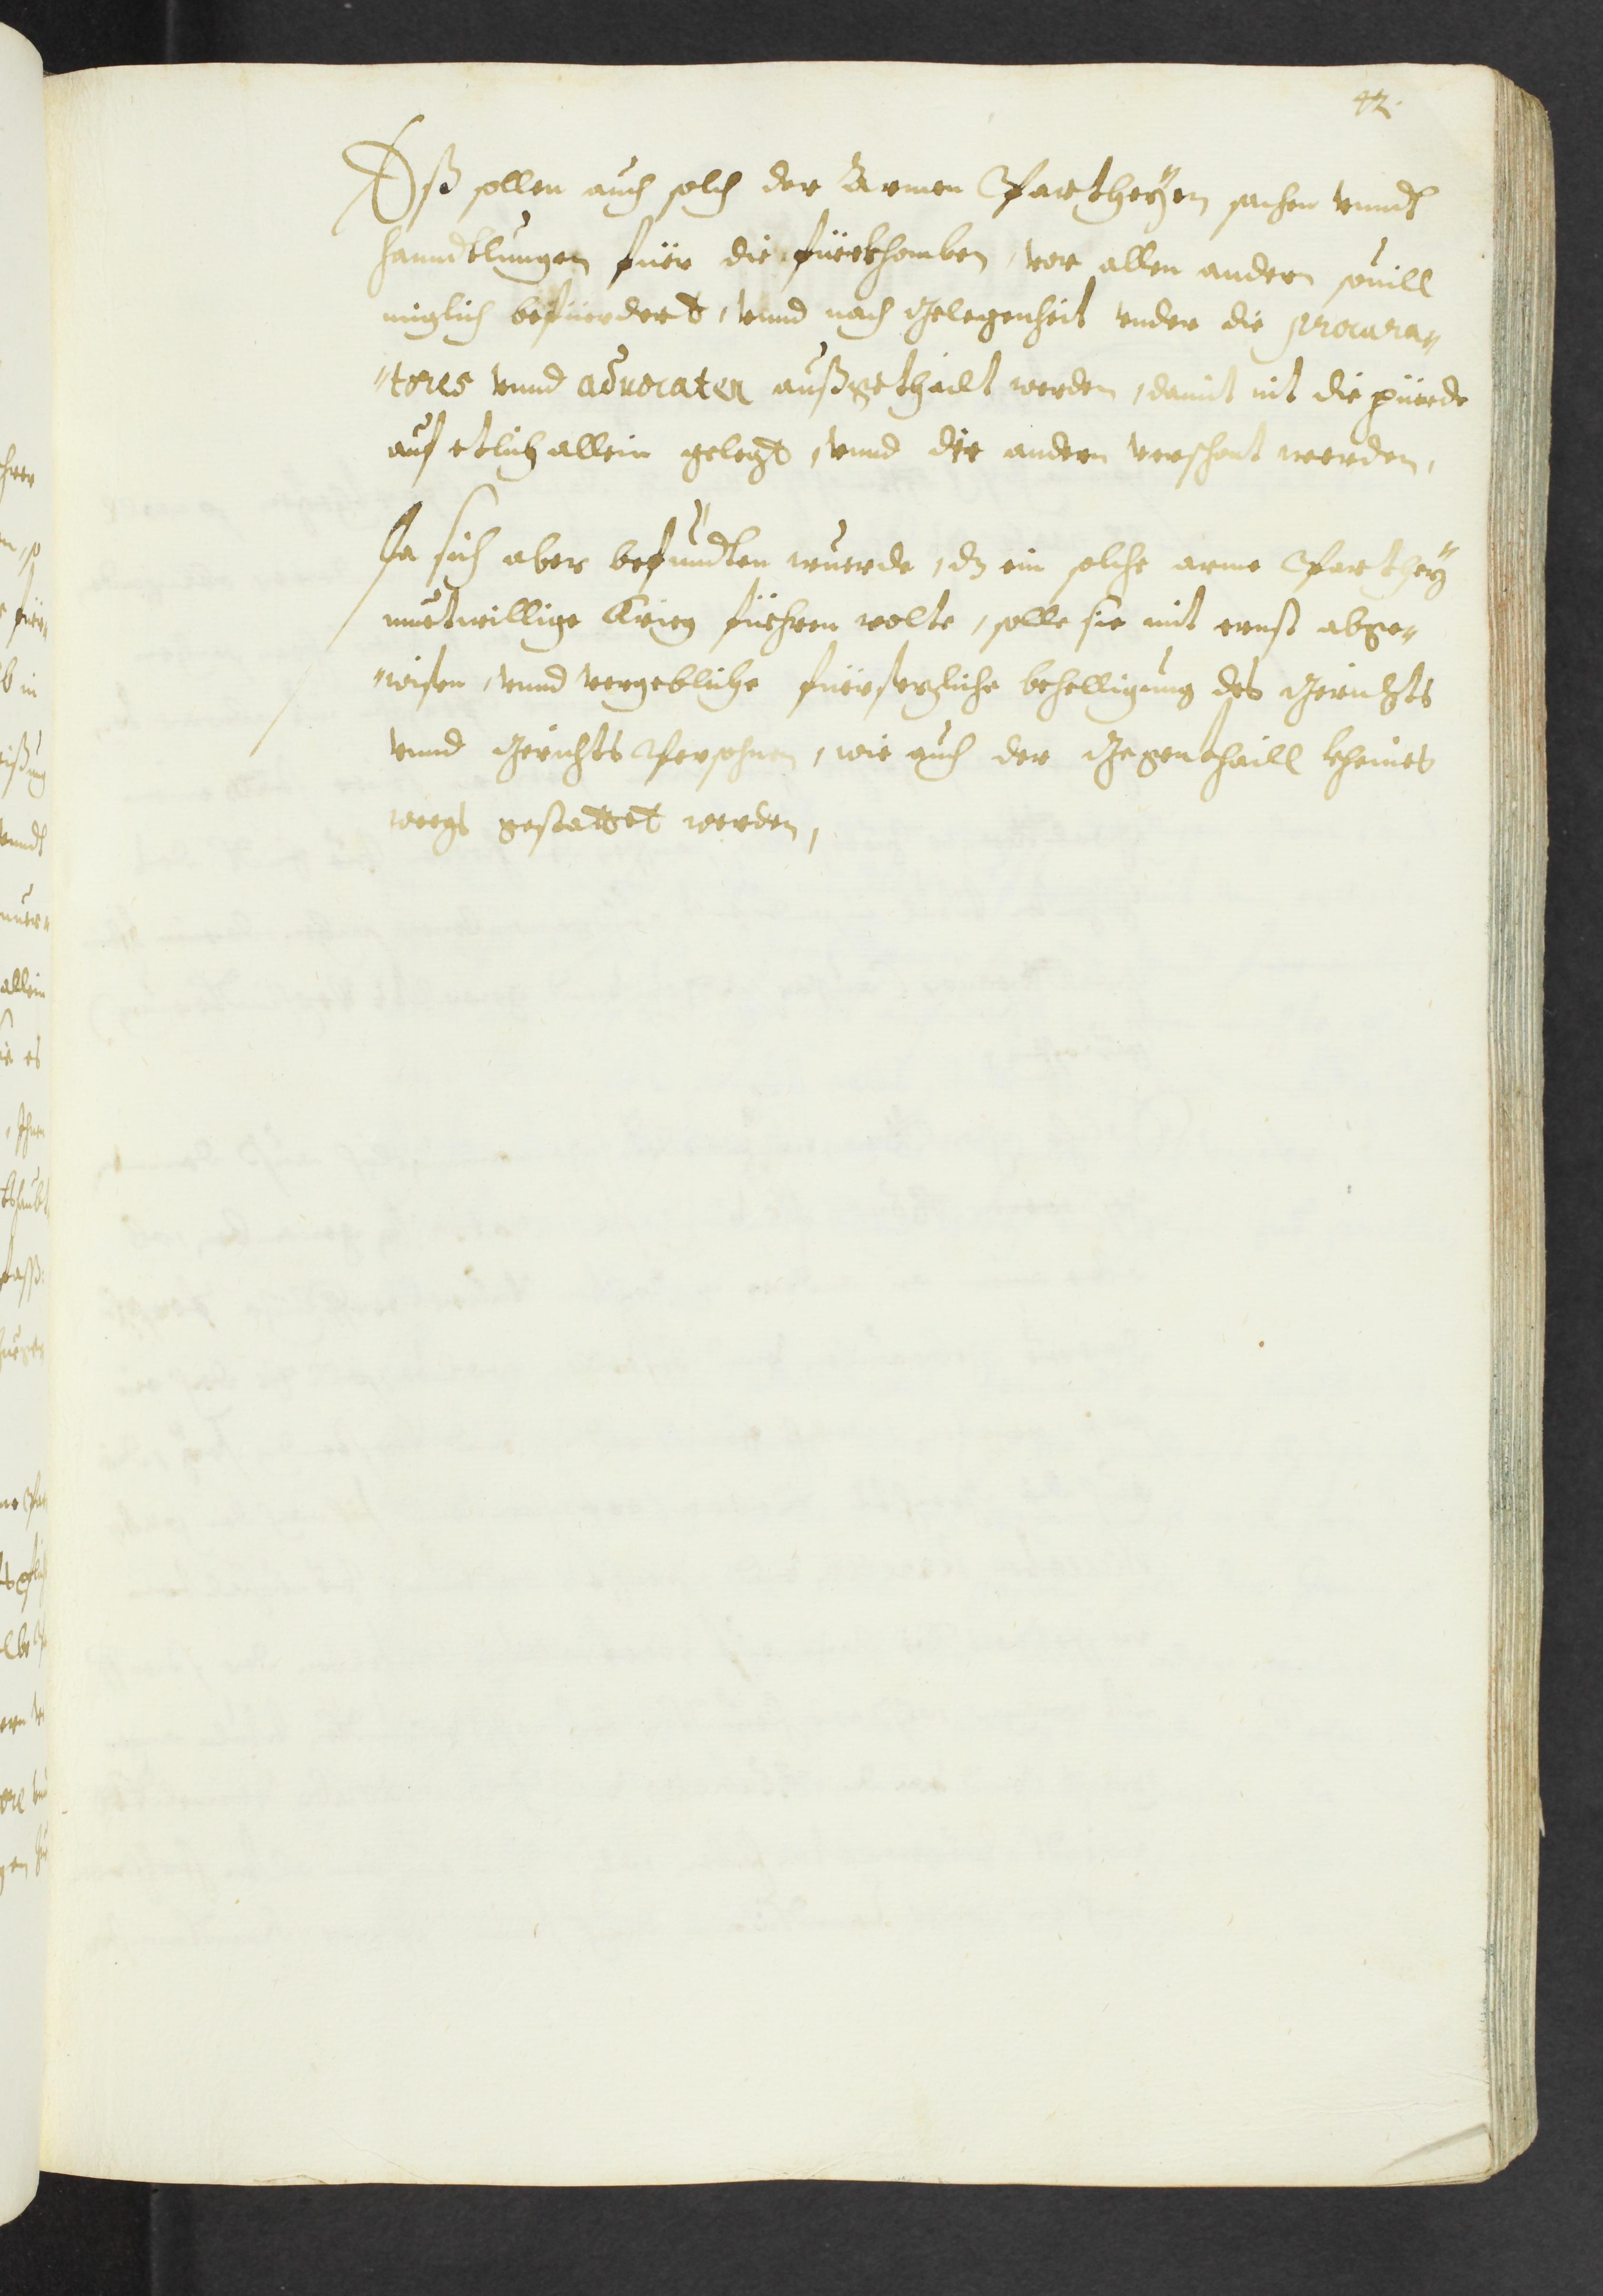 42.
Eß sollen auch solch der Armen Partheÿen sachen vnndt
hanndtlungen fuer die fürkhomben, vor allen andern souill
miglich befuerdert, vnnd nach gelegenheit vnder die procura-
-tores vnnd aduocaten außgethailt werden, damit nit die pürde
auf etlich allein gelegt, vnnd die andern verschont werden,
Da sich aber befundten wuerde, dz ein solche arme Parthey
muetwillige Krieg füehren wolte, solle sie mit ernst abge-
-wisen, vnnd vergebliche fürsezliche behelligung des Gerichts
vnnd Gerichts Persohnen, wie auch der Gegenthaill kheines
weegs gestattet werden,